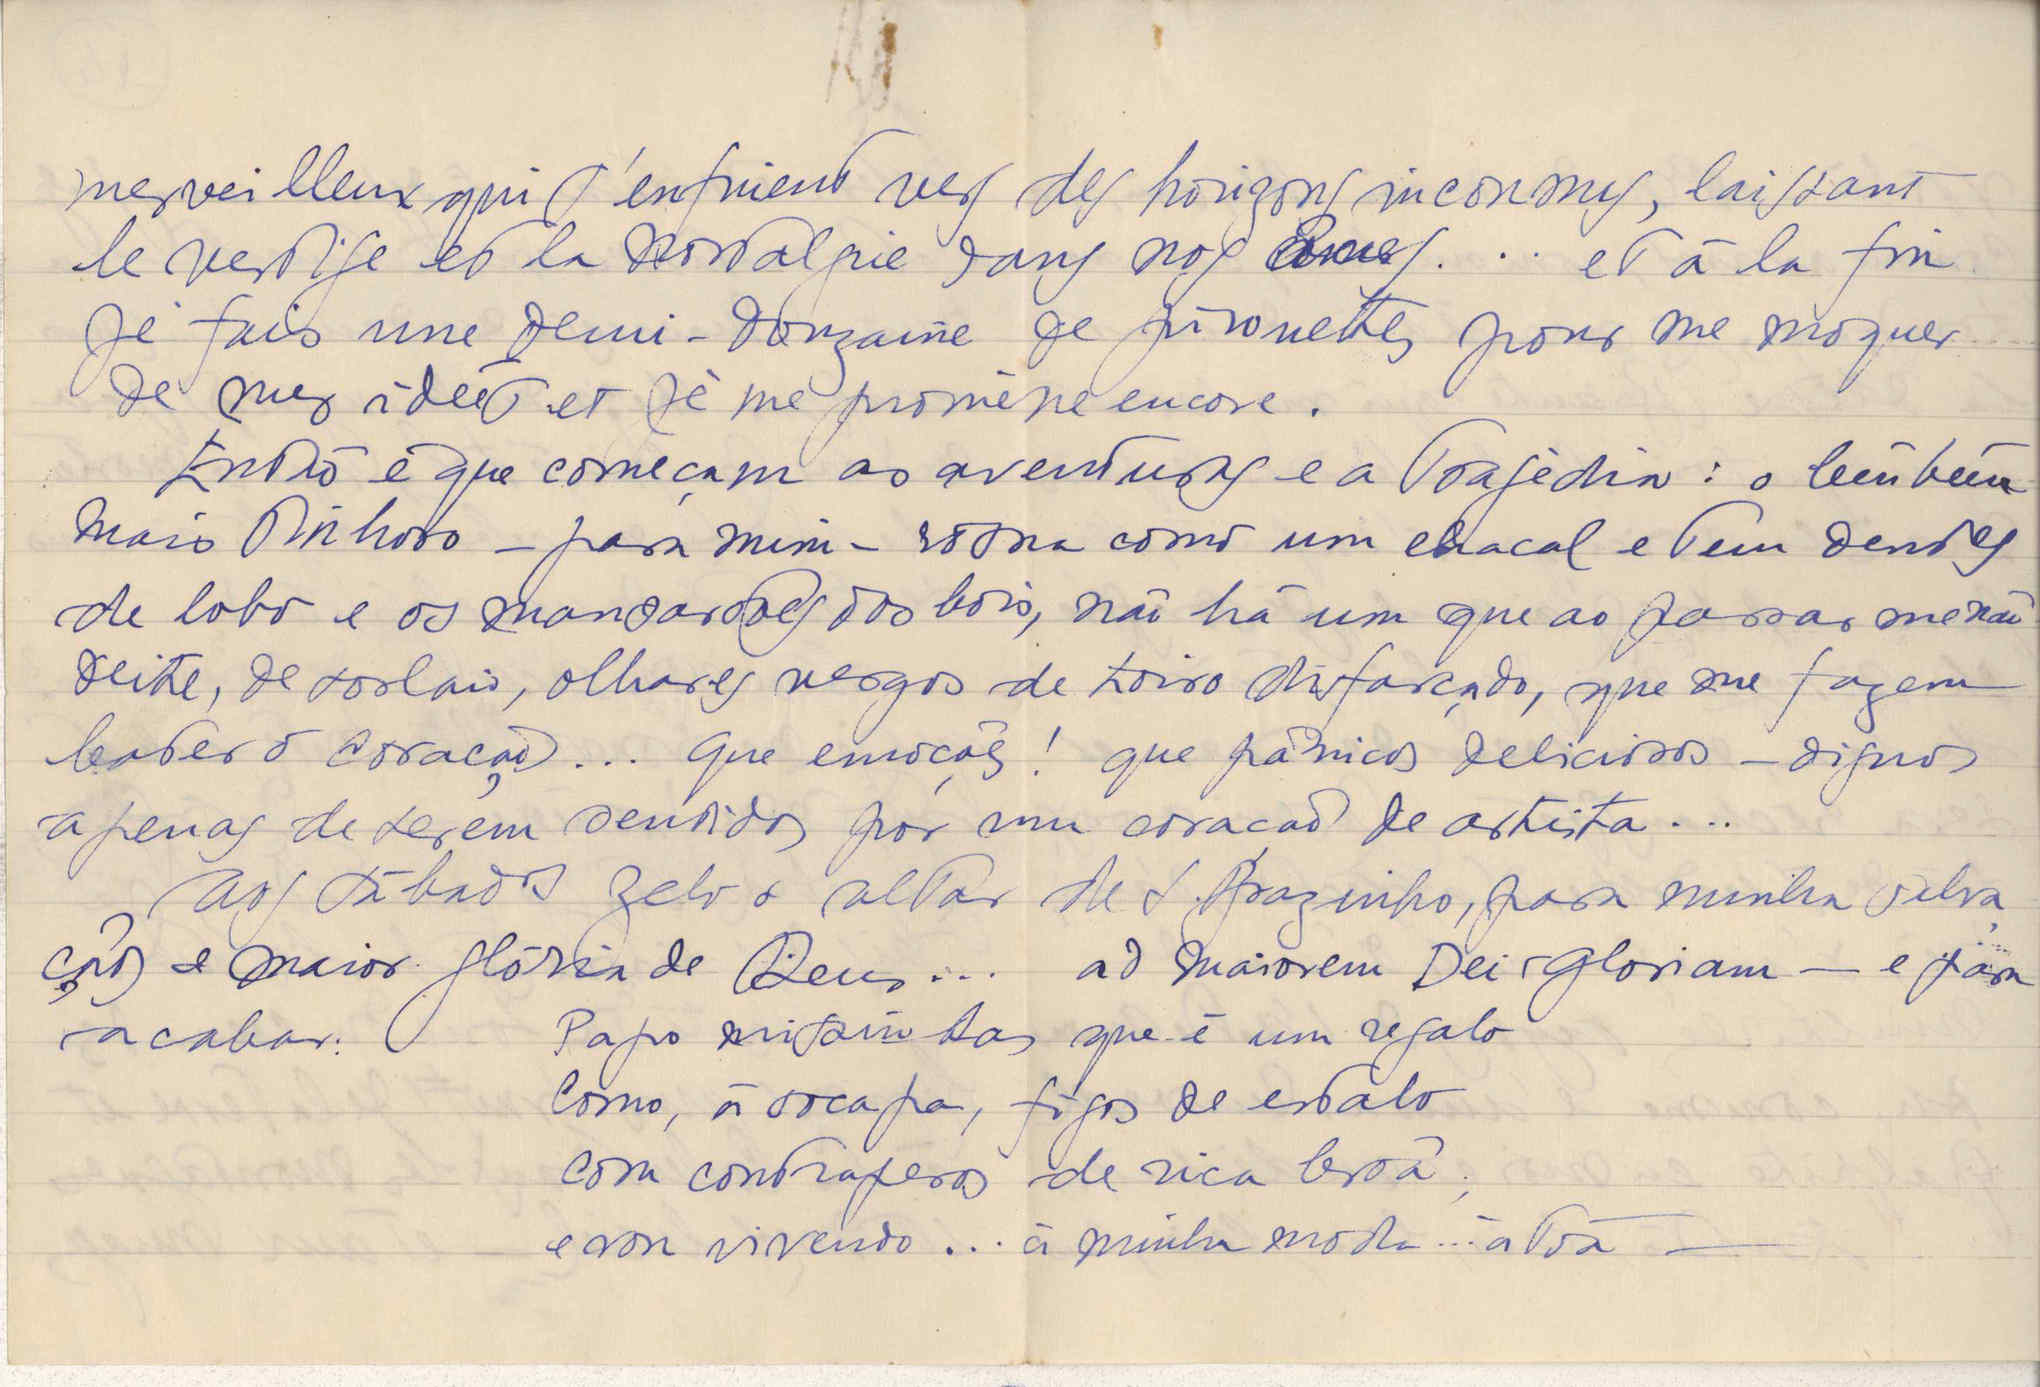 merveilleux qui s'enfuient vers des horizons inconnus, laissant
le vertige et la nostalgie dans nos âmes... et à la fin
je fais une demi-douzaine de pirouettes pour me moquer
de mes idées et je me promène encore.
Então é que começam as aventuras e a tragédia: o bèubèu
mais tinhoso - para mim - rosna como um chacal e tem dentes
de lobo e os mansarrões dos bois, não há um que ao passar me não
deite, de soslaio, olhares vesgos de toiro disfarçado, que me fazem
bater o coração... que emoções! que pânicos deliciosos - dignos
apenas de serem sentidos por um coração de artista...
Aos sábados zelo o altar de S. Brazinho, para minha salva
ção e maior glória de Deus... ad maiorem Dei Gloriam — e para
acabar:
Papo missinhas que é um regalo
Como, à socapa, figos de estalo
com contrapesos de rica broa;
e vou vivendo... à minha moda... à toa —